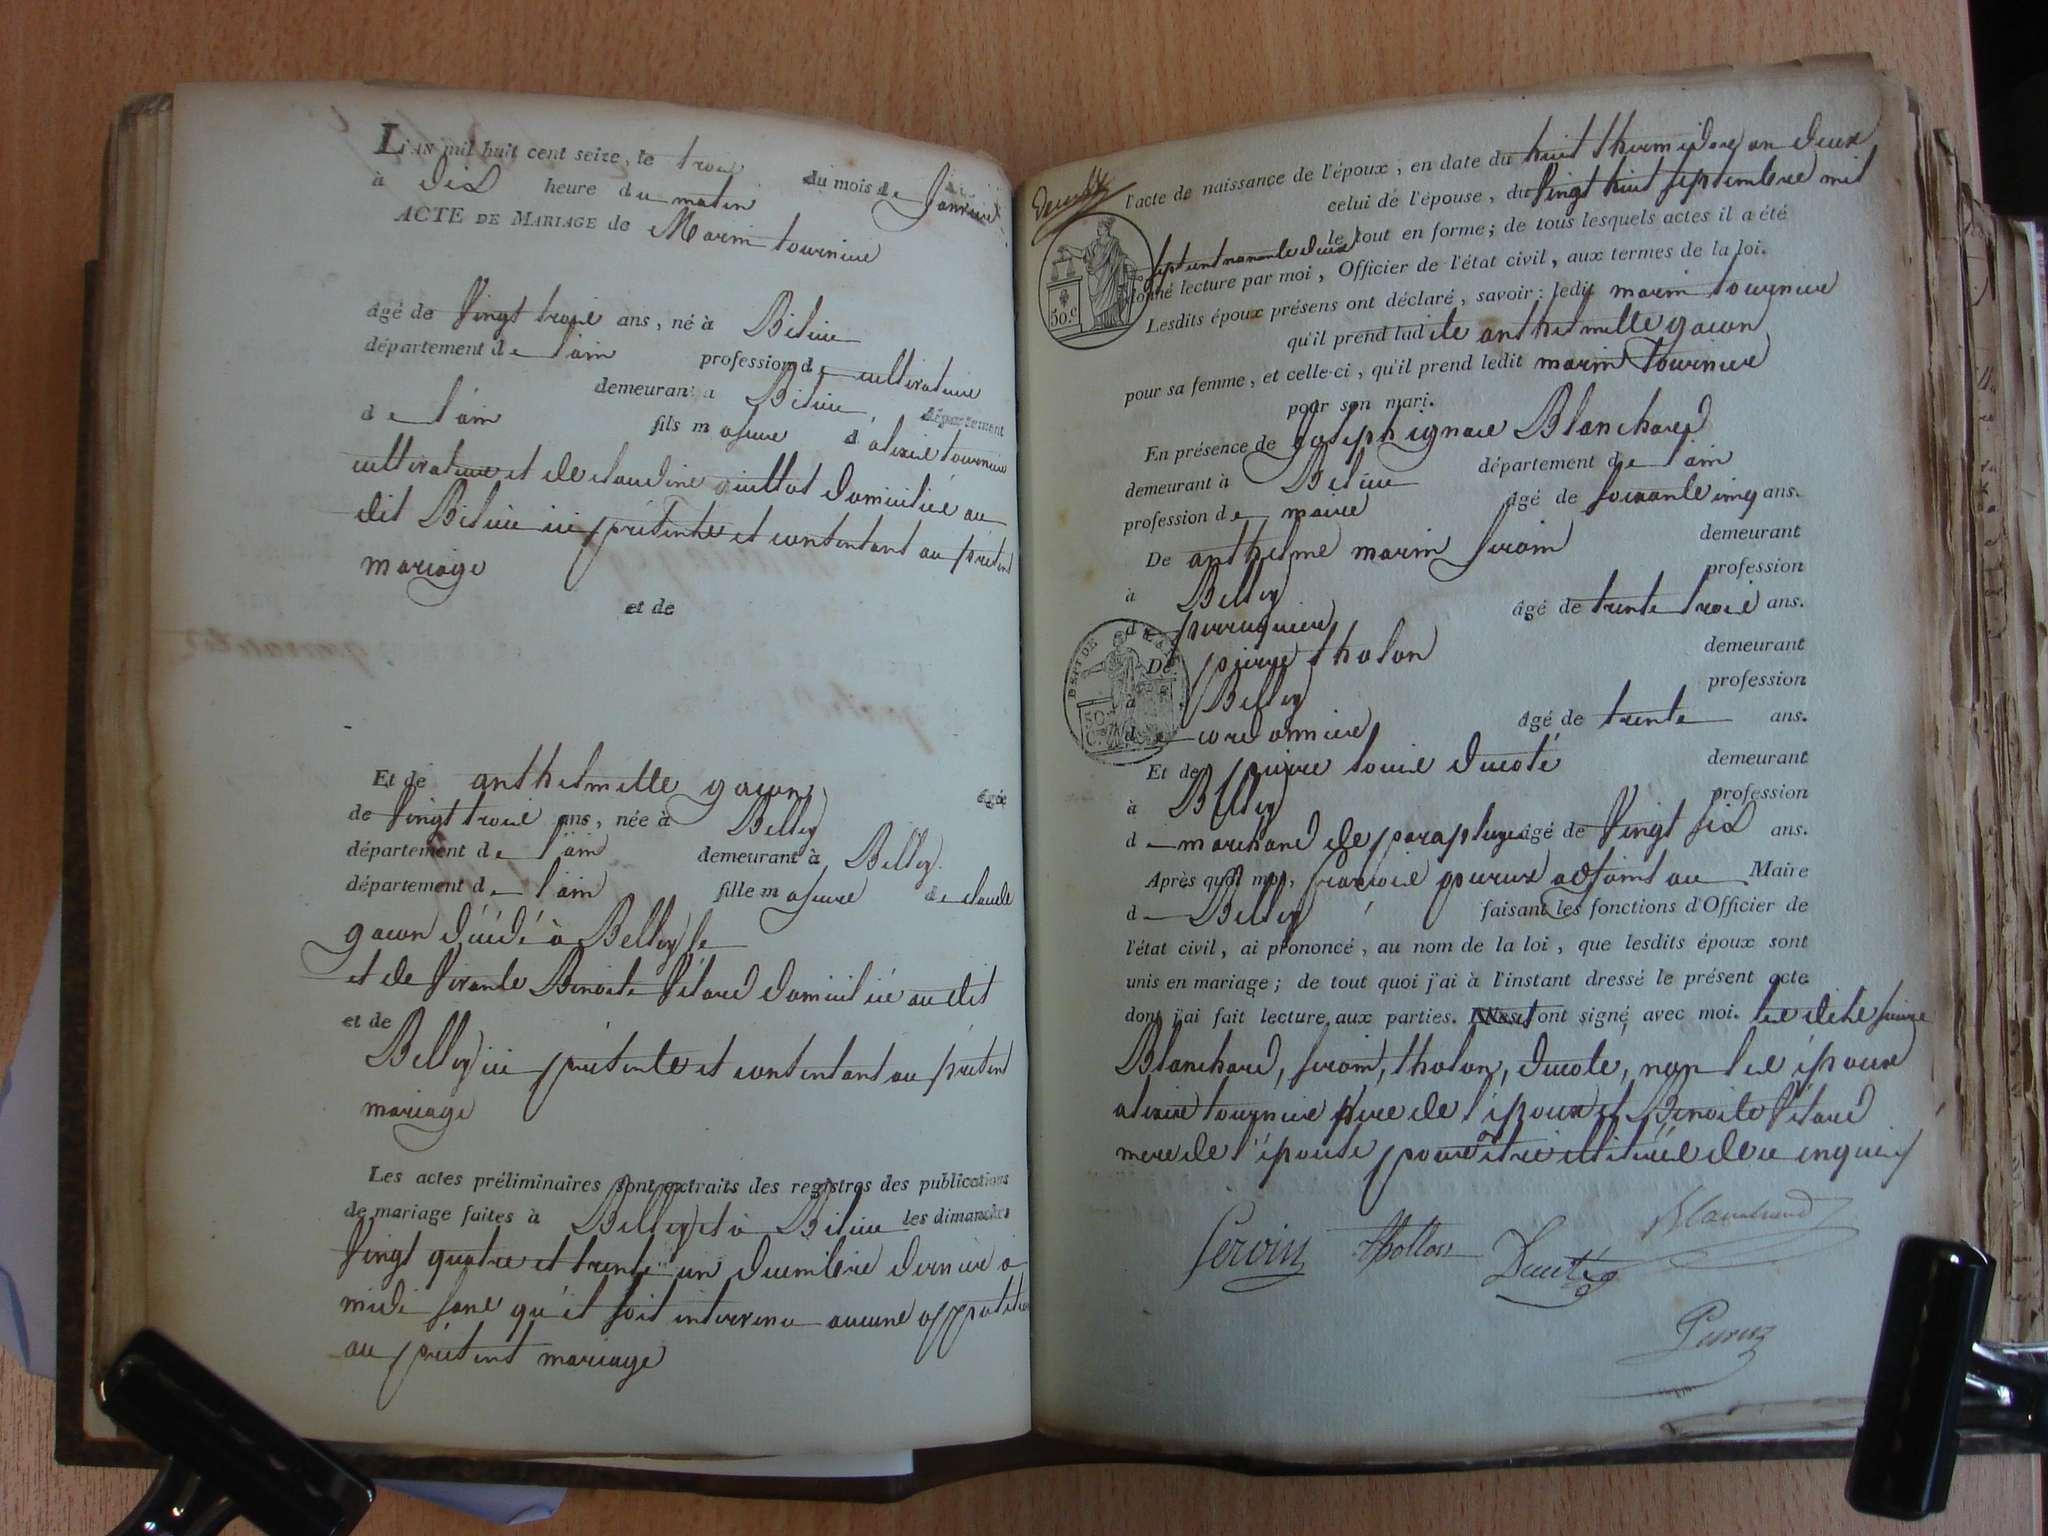 L'AN mil huit cent seize, le trois du mois de Janvier
à dix heure du matin
ACTE DE MARIAGE de Marin tournier
âgé de Vingt trois ans, né à
département de l'ain profession de cultivateur
demeurant à département
de l'ain fils majeur d'alexis tournier
cultivateur et de claudine domicilié au
dit ici présents et consentant au présent
mariage
et de
Et de anthelmette gacon âgée
de Vingt trois ans, née à Belley
département de l'ain demeurant à Belley
département de l'ain fille majeure de claude
gacon décédé à Belley le
et de Vivante Benoite Vétard domicilié au dit
et de
Belley ici présente et consentant au présent
mariage
Les actes préliminaires sont extraits des registres des publications
de mariage faites à Belley et à les dimanches
Vingt quatre et trente un décembre dernier à
midi sans qu'il soit intervenu aucune opposition
au présent mariage
l'acte de naissance de l'époux, en date du huit thermidor an deux
celui de l'épouse, du Vingt huit septembre mil
sept cent nonante deux le tout en forme; de tous lesquels actes il a été
donné lecture par moi, Officier de l'état civil, aux termes de la loi.
Lesdits époux présens ont déclaré, savoir: ledit marin tournier
qu'il prend ladite anthelmette gacon
pour sa femme, et celle-ci, qu'il prend ledit marin tournier
pour son mari.
50.c
En présence de Joseph ignace Blanchard
demeurant à département de l'ain
profession de maire âgé de soixante cinq ans.
De anthelme marin demeurant
à Belley profession
de perruquier âgé de trente trois ans.
De pierre tholon demeurant
à Belley profession
de cordonnier âgé de trente ans.
Et de pierre louis ducoté demeurant
à Belley profession
de marchand de parapluye âgé de Vingt six ans.
Après quoi moi, françois adjoint au Maire
de Belley faisant les fonctions d'Officier de
l'état civil, ai prononcé, au nom de la loi, que lesdits époux sont
unis en mariage; de tout quoi j'ai à l'instant dressé le présent acte
dont j'ai fait lecture aux parties. ont signé avec moi. les dits sieurs
Blanchard, tholon, ducote, non les époux
alexis tournier père de l'époux et Benoite Vétard
mere de l'épouse pour être illitérés de ce enquis
Blanchard